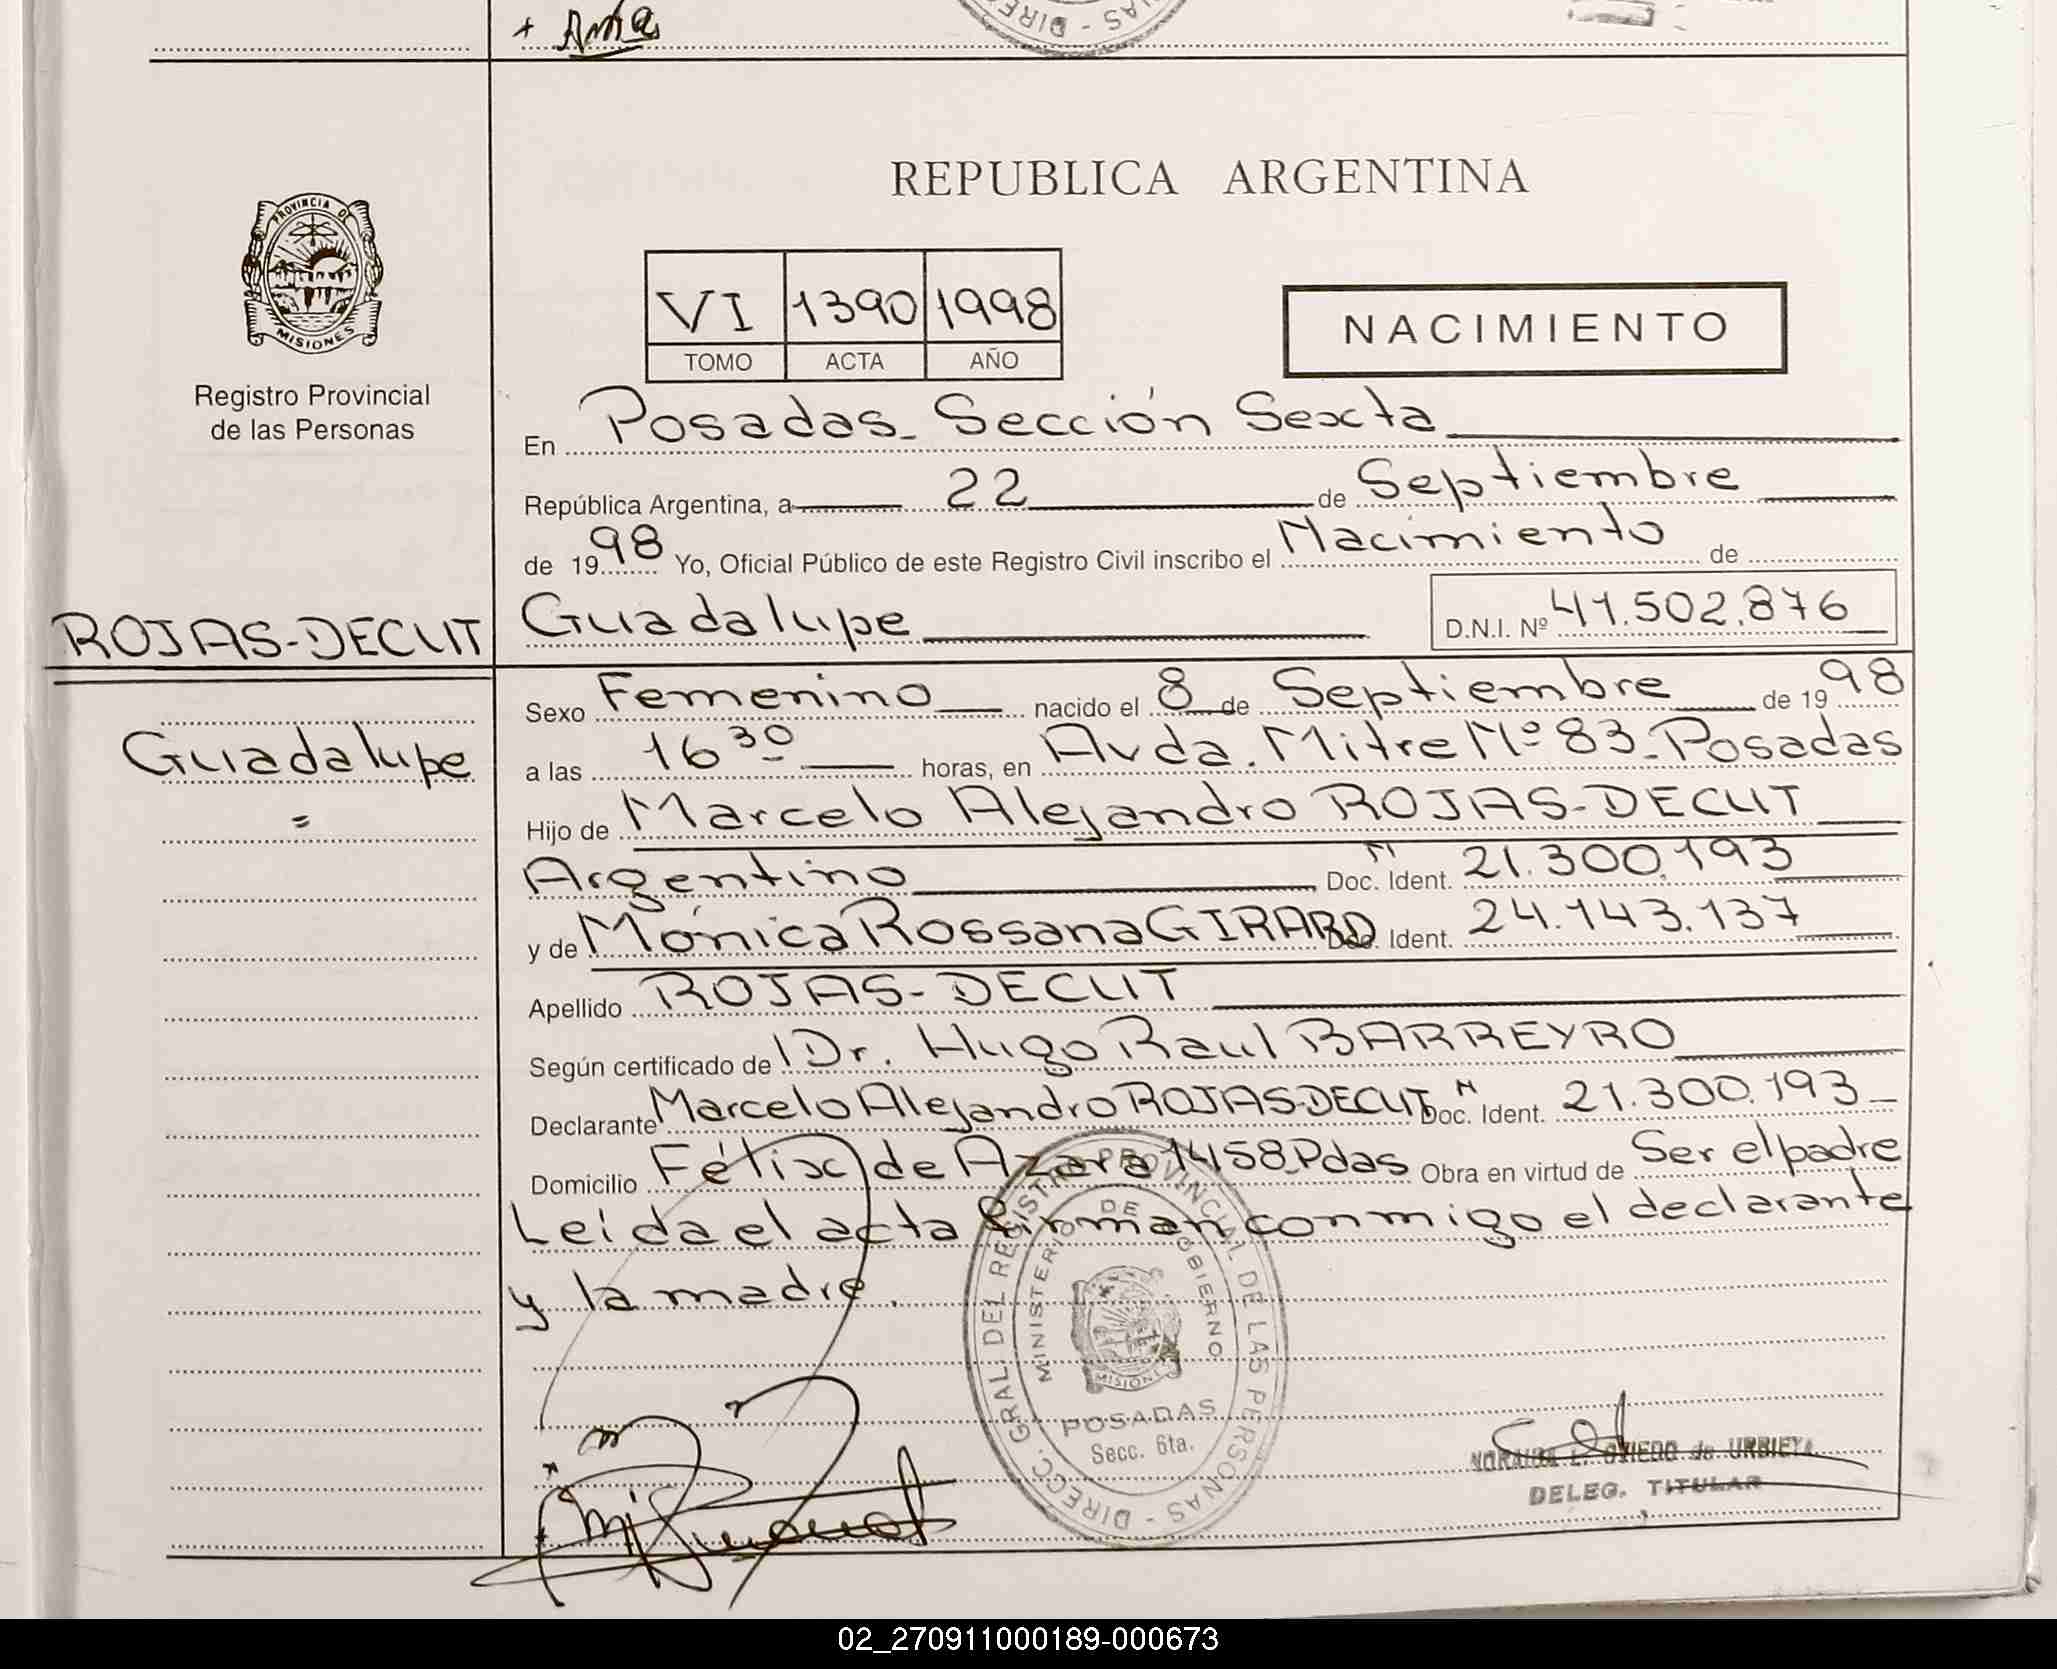 + Ama
DIREC
REPUBLICA ARGENTINA
PROVINCIA DE
MISIONES
Registro Provincial
de las Personas
VI 1390 1998
TOMO ACTA AÑO
NACIMIENTO
En Posadas - Sección Sexta
República Argentina, a 22 de Septiembre
de 1998 Yo, Oficial Público de este Registro Civil inscribo el Nacimiento de
ROJAS-DECUT Guadalupe D.N.I. Nº 41.502.876
Sexo Femenino nacido el 8 de Septiembre de 1998
Guadalupe
a las 16 30 horas, en Avda. Mitre Nº 83 - Posadas
=
Hijo de Marcelo Alejandro ROJAS-DECUT
Argentino Doc. Ident. 21.300.193
y de Mónica Rossana GIRARD Doc. Ident. 24.143.137
Apellido ROJAS-DECUT
Según certificado de Dr. Hugo Raul BARREYRO
Declarante Marcelo Alejandro ROJAS-DECUT Doc. Ident. 21.300.193
Domicilio Félix de Azara 1458 Pdas Obra en virtud de Ser el padre
Leída el acta firman conmigo el declarante
y la madre.
DIRECC. GRAL DEL REGISTRO PROVINCIAL DE LAS PERSONAS
MINISTERIO DE GOBIERNO
MISIONES
POSADAS
Secc. 6ta.
NORAIDA L. OVIEDO de URBIETA
DELEG. TITULAR
02_270911000189-000673